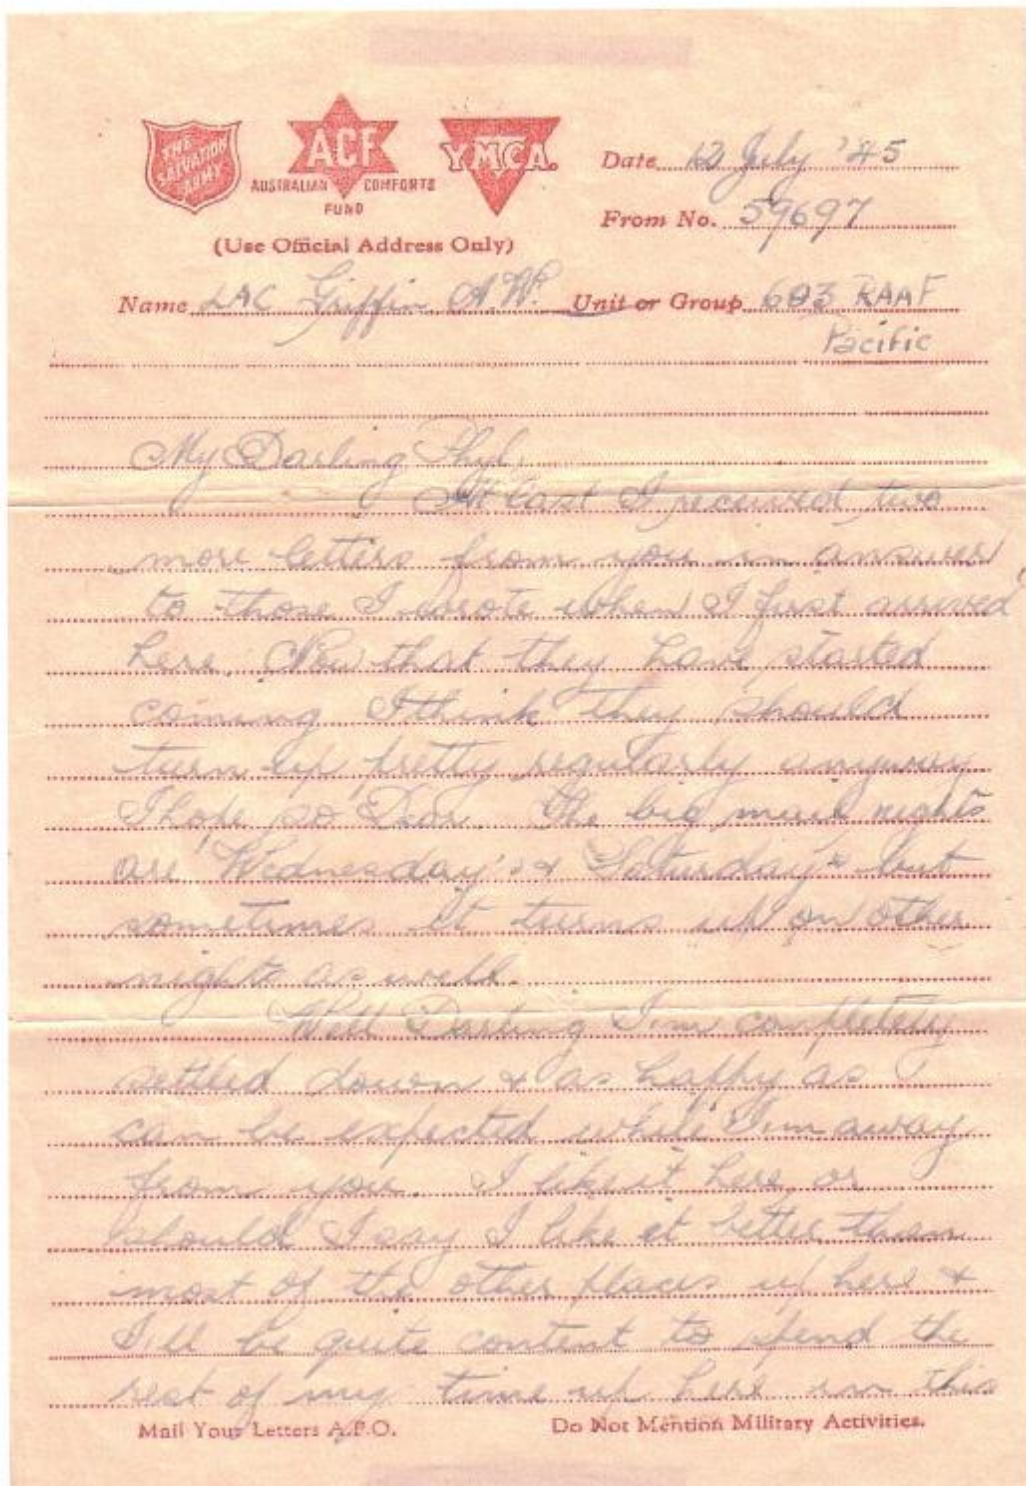 THE
SALVATION
ARMY
ACF
AUSTRALIAN COMFORTS
FUND
Y.M.C.A.
Date 12 July '45
From No. 59697
(Use Official Address Only)
Name LAC Griffin A.W. Unit or Group 603 RAAF
Pacific
My Darling Phyl,
At last I received two
more letters from you in answer
to those I wrote when I first arrived
here. Now that they have started
coming I think they should
turn up pretty regularly anyway
I hope so Dear. The big mail nights
are Wednesday's & Saturday's but
sometimes it turns up on other
nights as well.
Well Darling I'm completely
settled down & as happy as
can be expected while I'm away
from you. I like it here, or
should I say I like it better than
most of the other places up here &
I'll be quite content to spend the
rest of my time up here in this
Mail Your Letters A.P.O. Do Not Mention Military Activities.